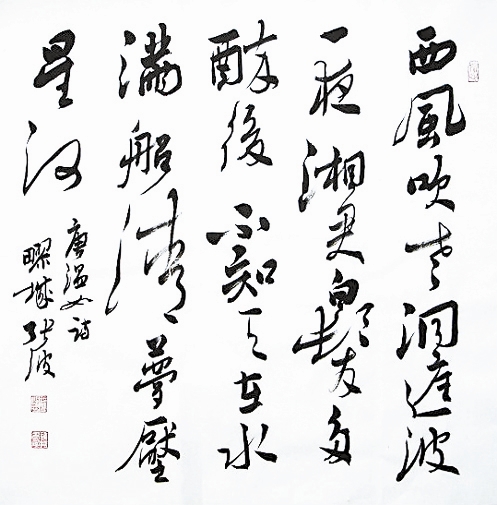 西風吹老洞庭波
一夜湘君白髮多
醉後不知天在水
滿船清夢壓
星河
唐温如詩
城張波